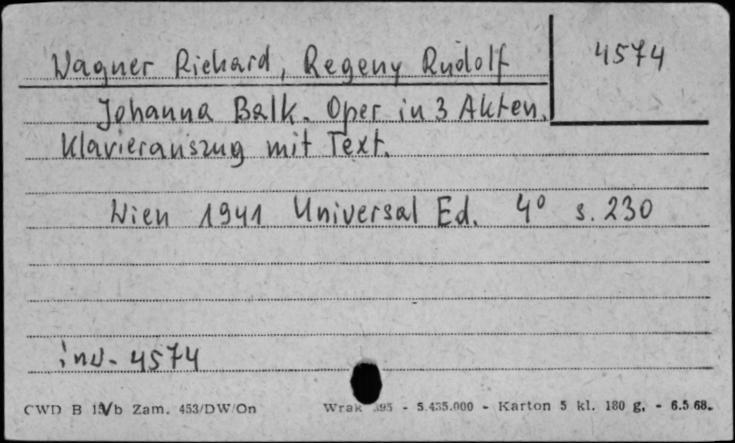 Wagner Richard, Regeny Rudolf
4574
Johanna Balk. Oper in 3 Akten.
Klavierauszug mit Text.
Wien 1941 Universal Ed. 4° s. 230
inv. 4574
CWD B Zam. 453/DW/On Wrak - 5.435.000 - Karton 5 kl. 180 g. - 6.5.68.